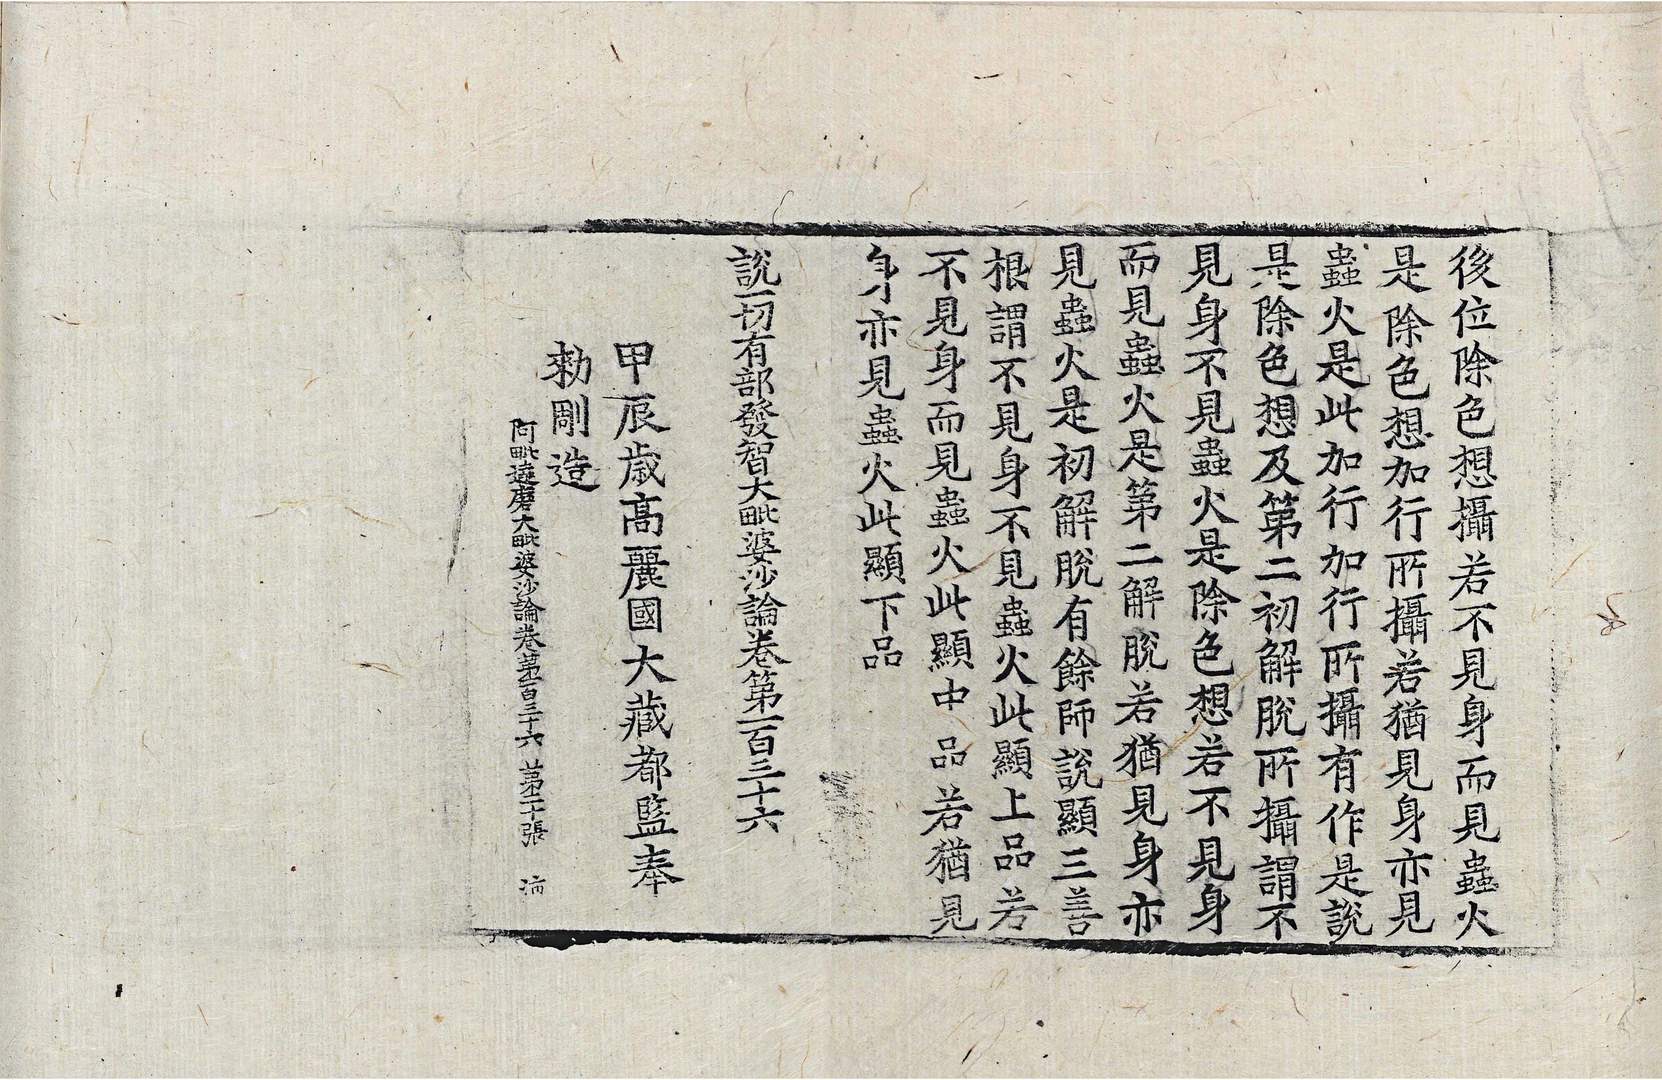 後位除色想攝若不見身而見蟲火
是除色想加行所攝若猶見身亦見
蟲火是此加行加行所攝有作是說
是除色想及第二初解脫所攝謂不
見身不見蟲火是除色想若不見身
而見蟲火是第二解脫若猶見身亦
見蟲火是初解脫有餘師說顯三善
根謂不見身不見蟲火此顯上品若
不見身而見蟲火此顯中品若猶見
身亦見蟲火此顯下品
說一切有部發智大毗婆沙論卷第一百三十六
甲辰歲高麗國大藏都監奉
勑剛造
阿毗達磨大毗婆沙論卷第一百三十六 第二十張